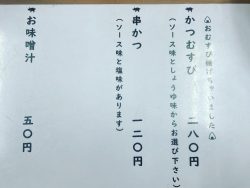 おむすび揚げちゃいました
かつむすび 二八〇円
(ソース味としょうゆ味からお選び下さい)
串かつ 一二〇円
(ソース味と塩味があります)
お味噌汁 五〇円